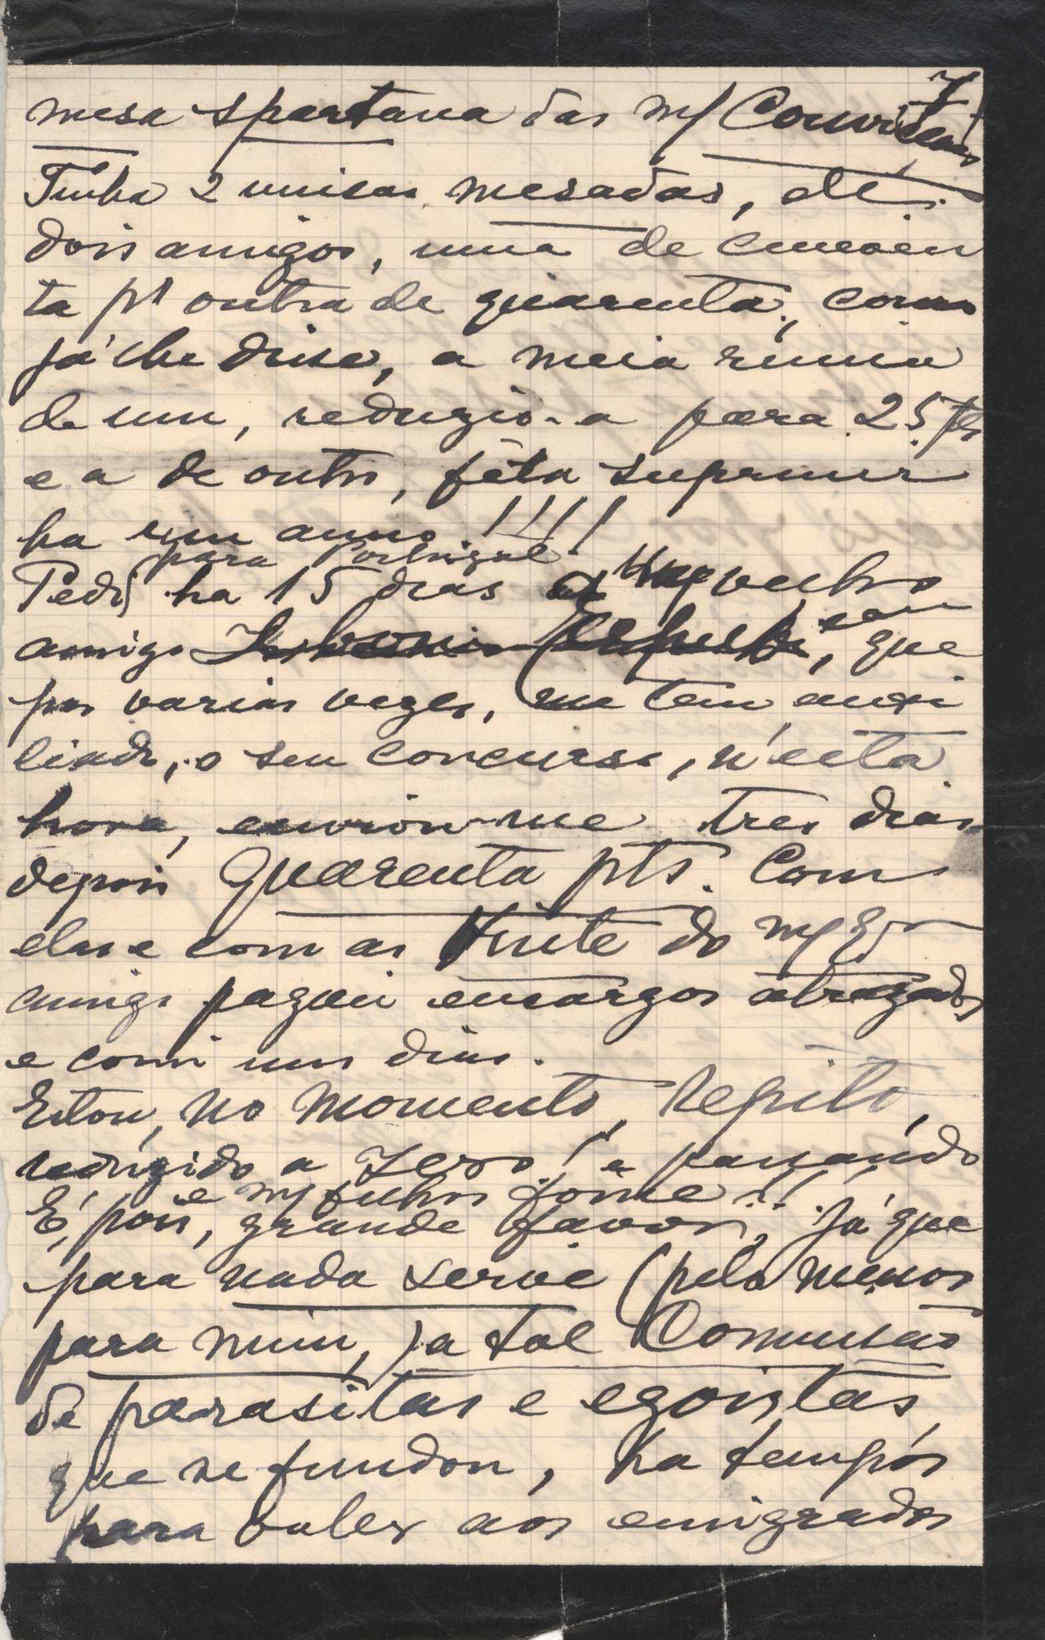 7
mesa spartana das m/ Convicções
Tinha 2 unicas mesadas, de
dois amigos, uma de cincoen
ta pts outra de quarenta; como
já lhe disse, a meia ruina
de um, reduzio-a para 25 pts
e a de outro, fêla suprimir
ha um anno!!!!
para Portugal
Pedi ha 15 dias a um velho
amigo, que
por varias vezes, me tem auxi
liado, o seu concurso, n'esta
hora, enviou-me tres dias
depois quarenta pts. Com
elas e com as vinte do m/
amigo paguei encargos atrazados
e comi uns dias.
Estou, no momento, repito,
reduzido a zero! e passando
e m/ filhos fome!!
É, pois, grande favor, já que
para nada serve (pelo menos
para mim,) a tal Comissão
de parasitas e egoistas
que se fundou, ha tempos
para valer aos emigrados